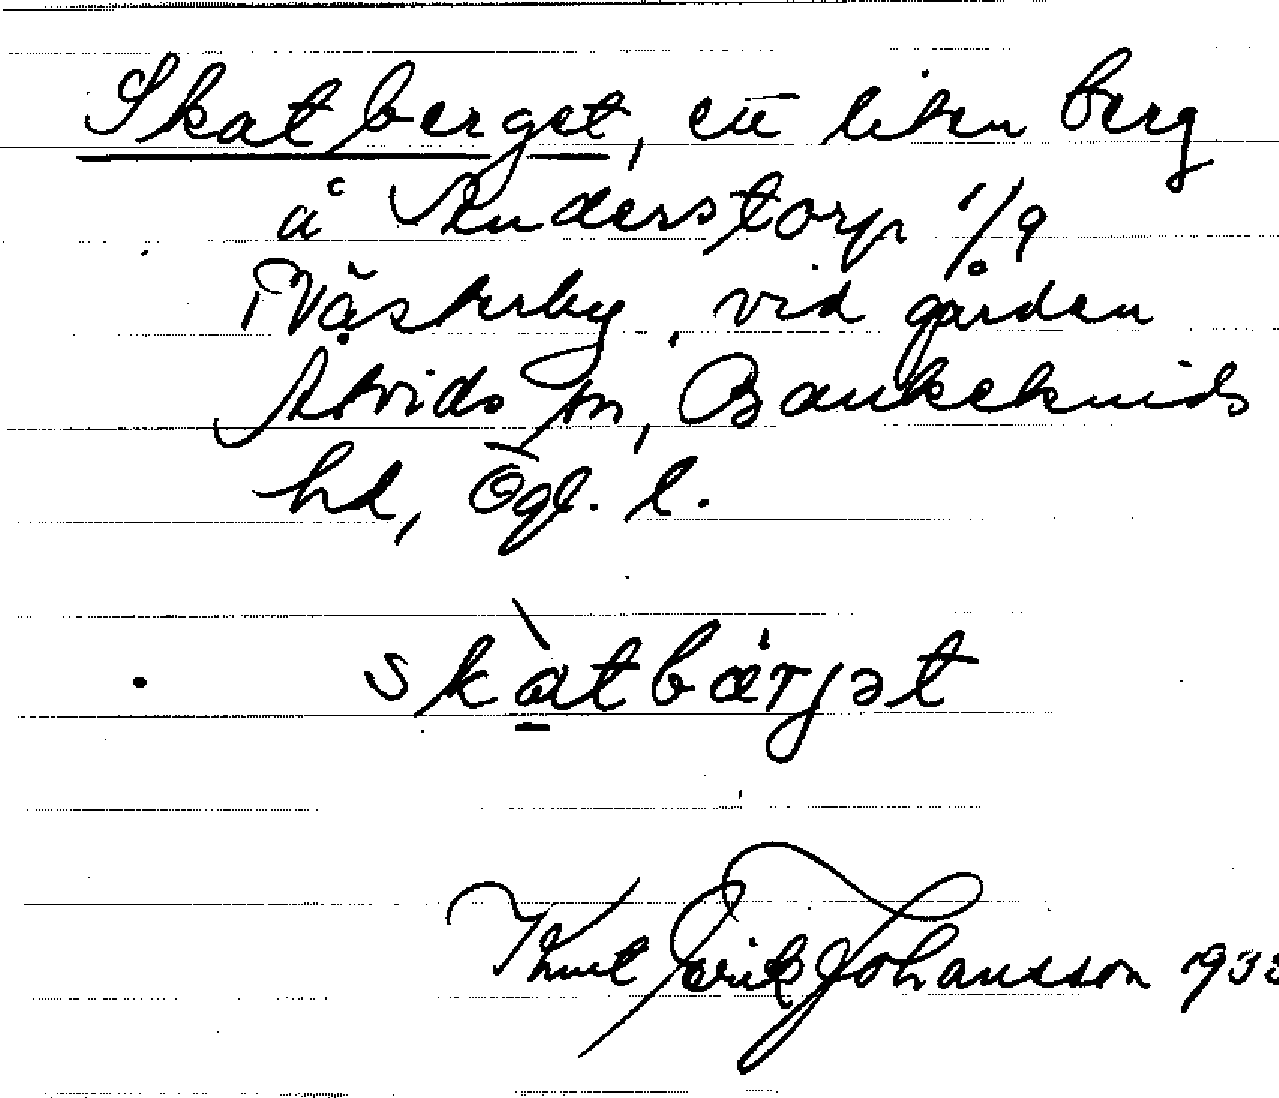 Skatberget, ett litet berg
å Anderstorp 1/9
i Västerby, vid gården
Arvids, Bankekinds
hd, Ögl. l.
skàtbærjət
Knut Erik Johansson